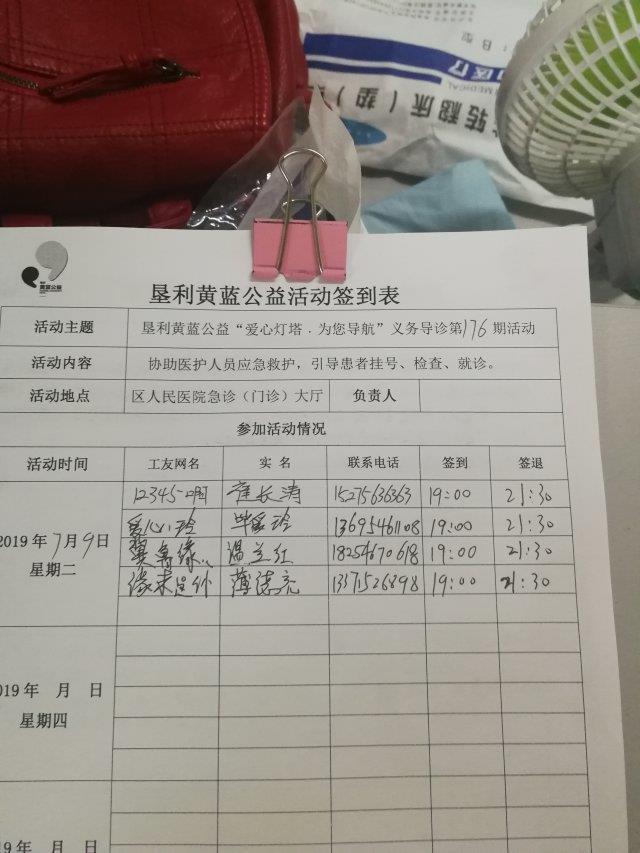 B型
医疗
MEDICAL
转翻床(垫)
黄蓝公益
垦利黄蓝公益活动签到表
活动主题 垦利黄蓝公益“爱心灯塔.为您导航”义务导诊第176期活动
活动内容 协助医护人员应急救护,引导患者挂号、检查、就诊。
活动地点 区人民医院急诊(门诊)大厅 负责人
参加活动情况
活动时间 工友网名 实 名 联系电话 签到 签退
12345 崔长涛 15275636363 19:00 21:30
2019年7月9日 星期二
爱心玲 毕爱玲 13695461108 19:00 21:30
温兰红 18254670618 19:00 21:30
缘来是你 薄德亮 13371526898 19:00 21:30
019年 月 日
星期四
19年 月 日